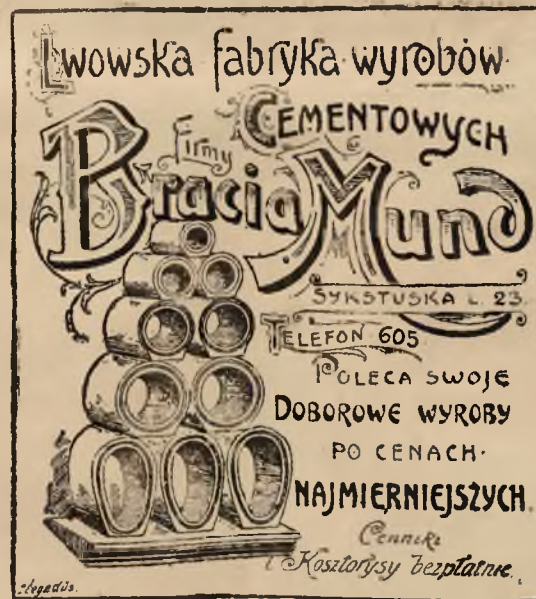 Lwowska fabryka wyrobów
CEMENTOWYCH
Firmy
Bracia Mund
SYKSTUSKA L. 23
TELEFON 605
POLECA SWOJE
DOBOROWE WYROBY
PO CENACH
NAJMIERNIEJSZYCH.
Cenniki
i Kosztorysy bezpłatnie.
Hegedüs.